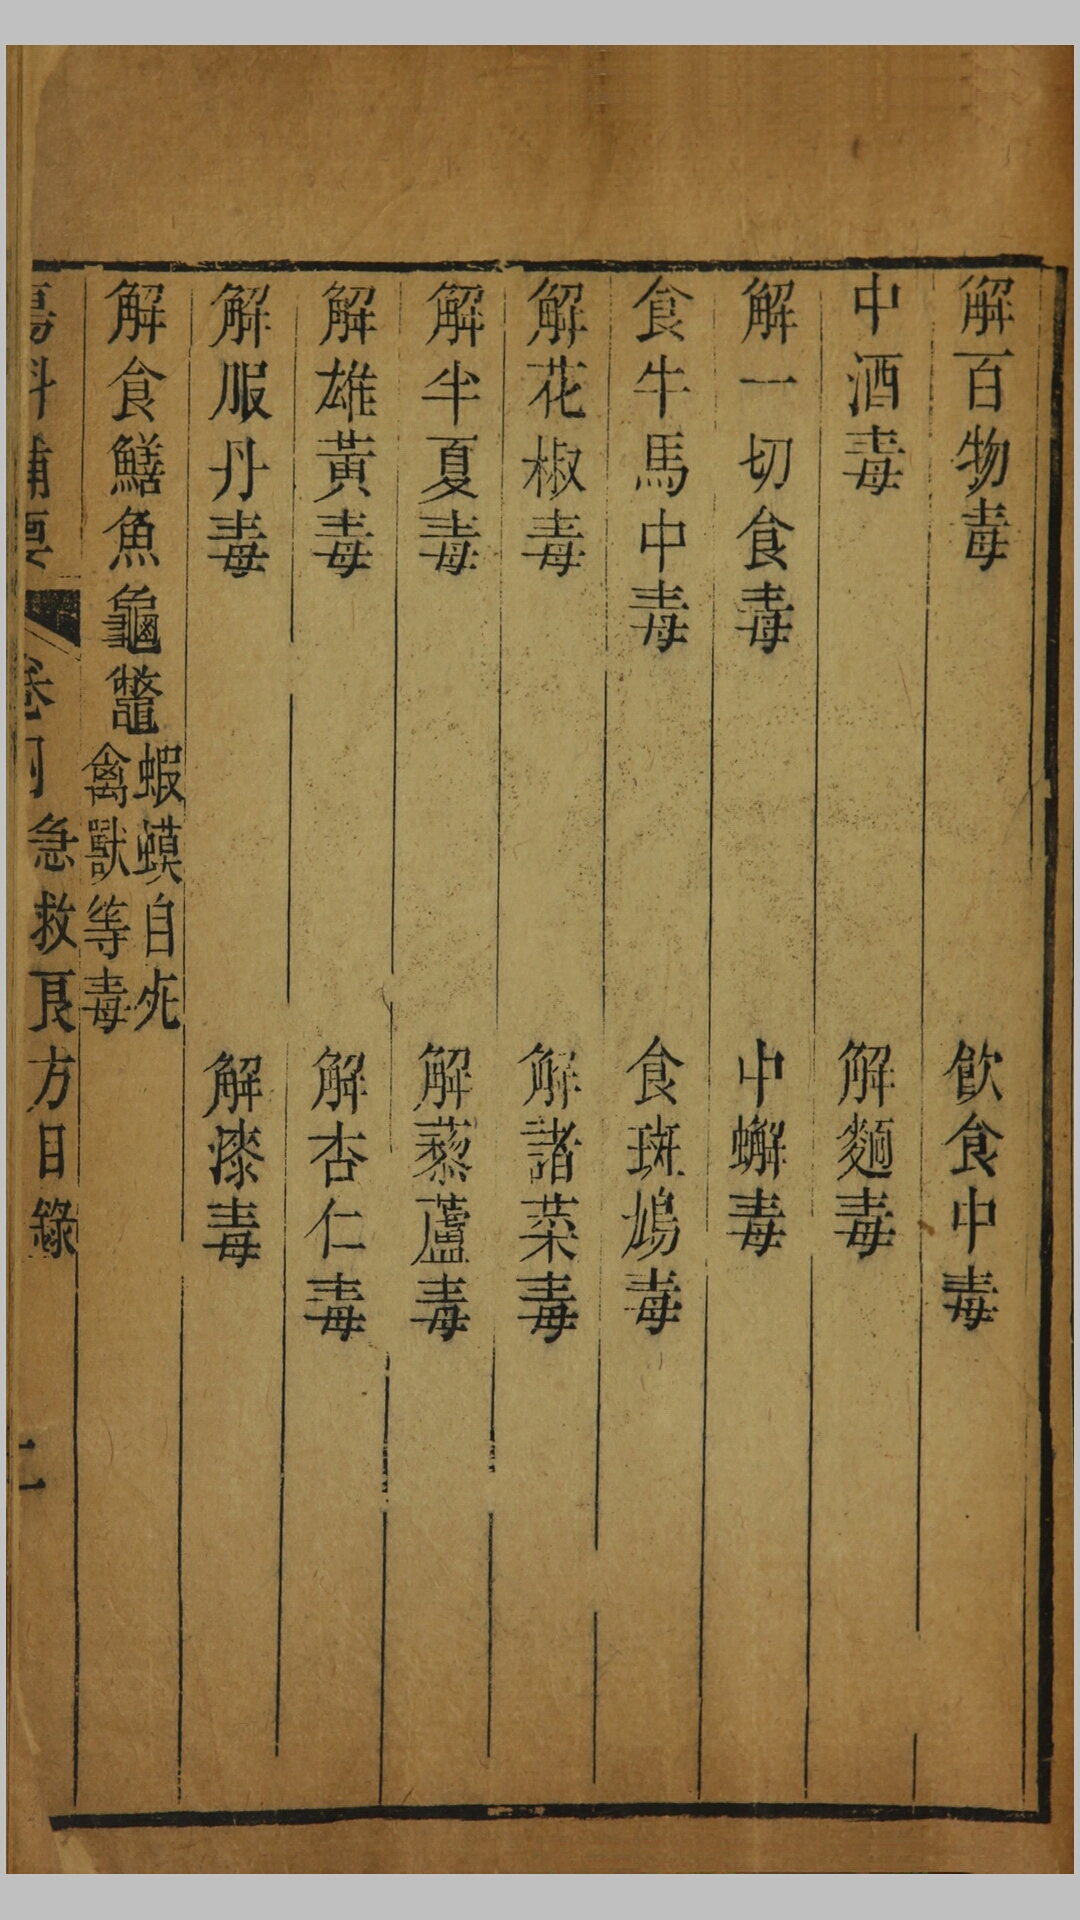 解百物毒　飲食中毒
中酒毒　解麵毒
解一切食毒　中蠏毒
食牛馬中毒　食斑鳩毒
解花椒毒　解諸菜毒
解半夏毒　解藜蘆毒
解雄黃毒　解杏仁毒
解服丹毒　解漆毒
解食鱔魚龜鼈蝦蟆自死禽獸等毒
傷科補要　卷四　急救良方目錄